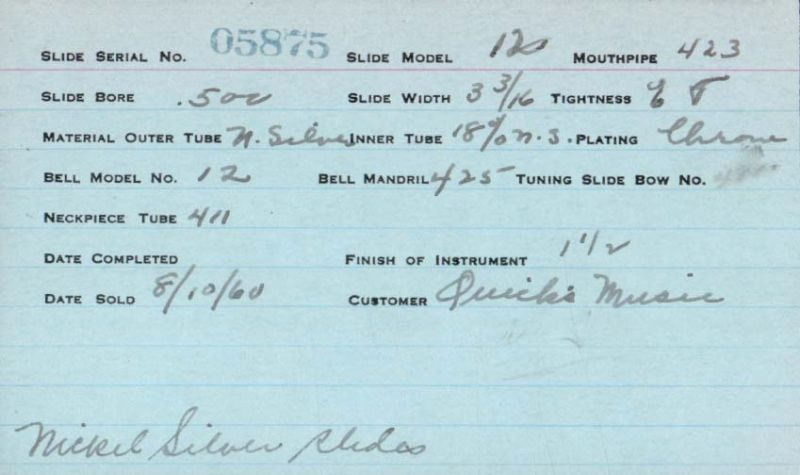 SLIDE SERIAL NO. 05875 SLIDE MODEL 12 MOUTHPIPE 423
SLIDE BORE .500 SLIDE WIDTH 3 3/16 TIGHTNESS T
MATERIAL OUTER TUBE N. Silver INNER TUBE 18% N.S. PLATING Chrome
BELL MODEL NO. 12 BELL MANDRIL 425 TUNING SLIDE BOW NO.
NECKPIECE TUBE 411
DATE COMPLETED FINISH OF INSTRUMENT 1 1/2
DATE SOLD 8/10/60 CUSTOMER Quick's Music
Nickel Silver slides